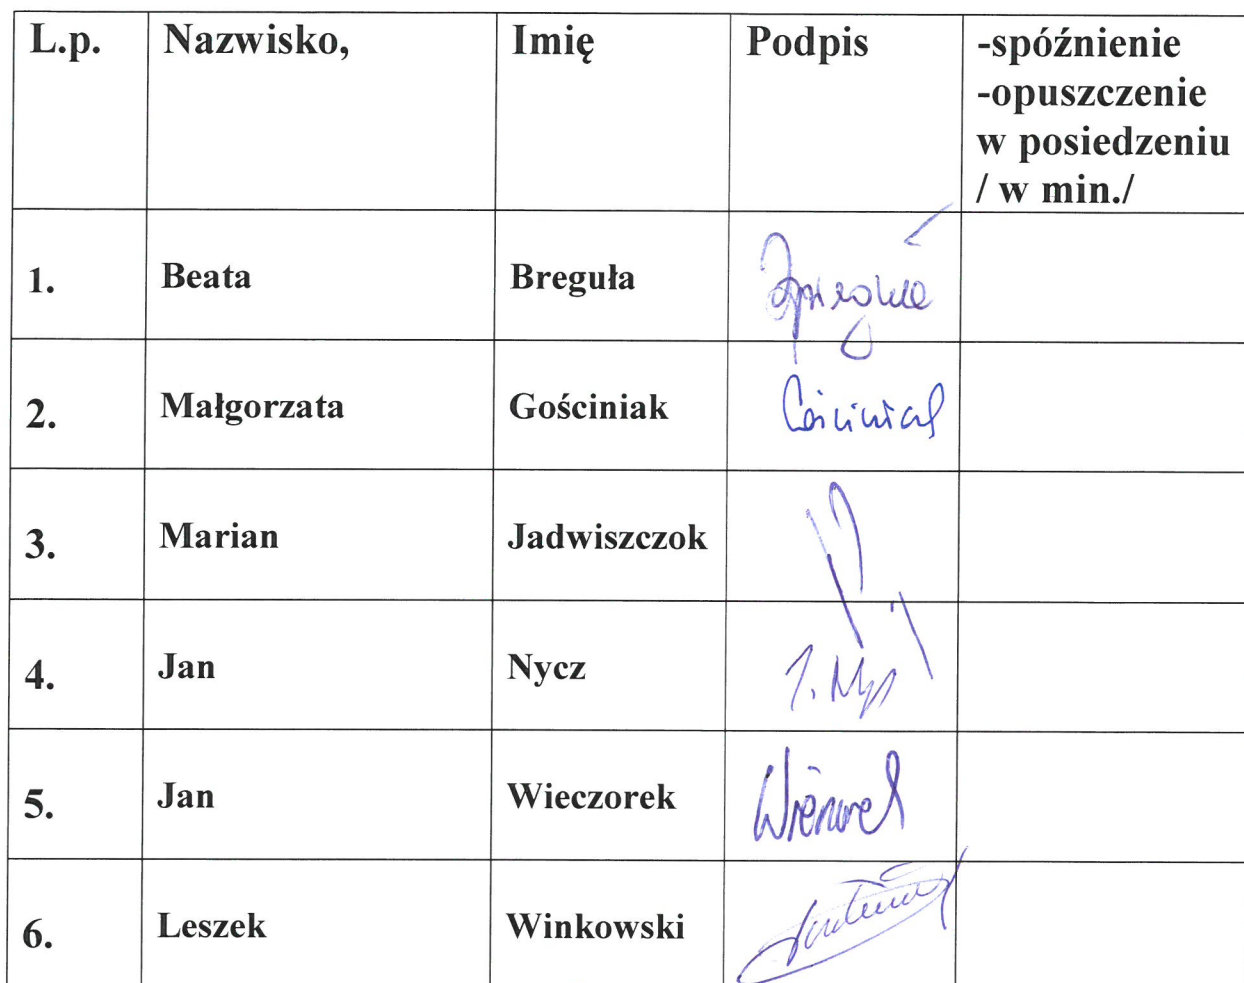 L.p. Nazwisko, Imię Podpis -spóźnienie
-opuszczenie
w posiedzeniu
/ w min./
1. Beata Breguła
2. Małgorzata Gościniak
3. Marian Jadwiszczok
4. Jan Nycz
5. Jan Wieczorek
6. Leszek Winkowski